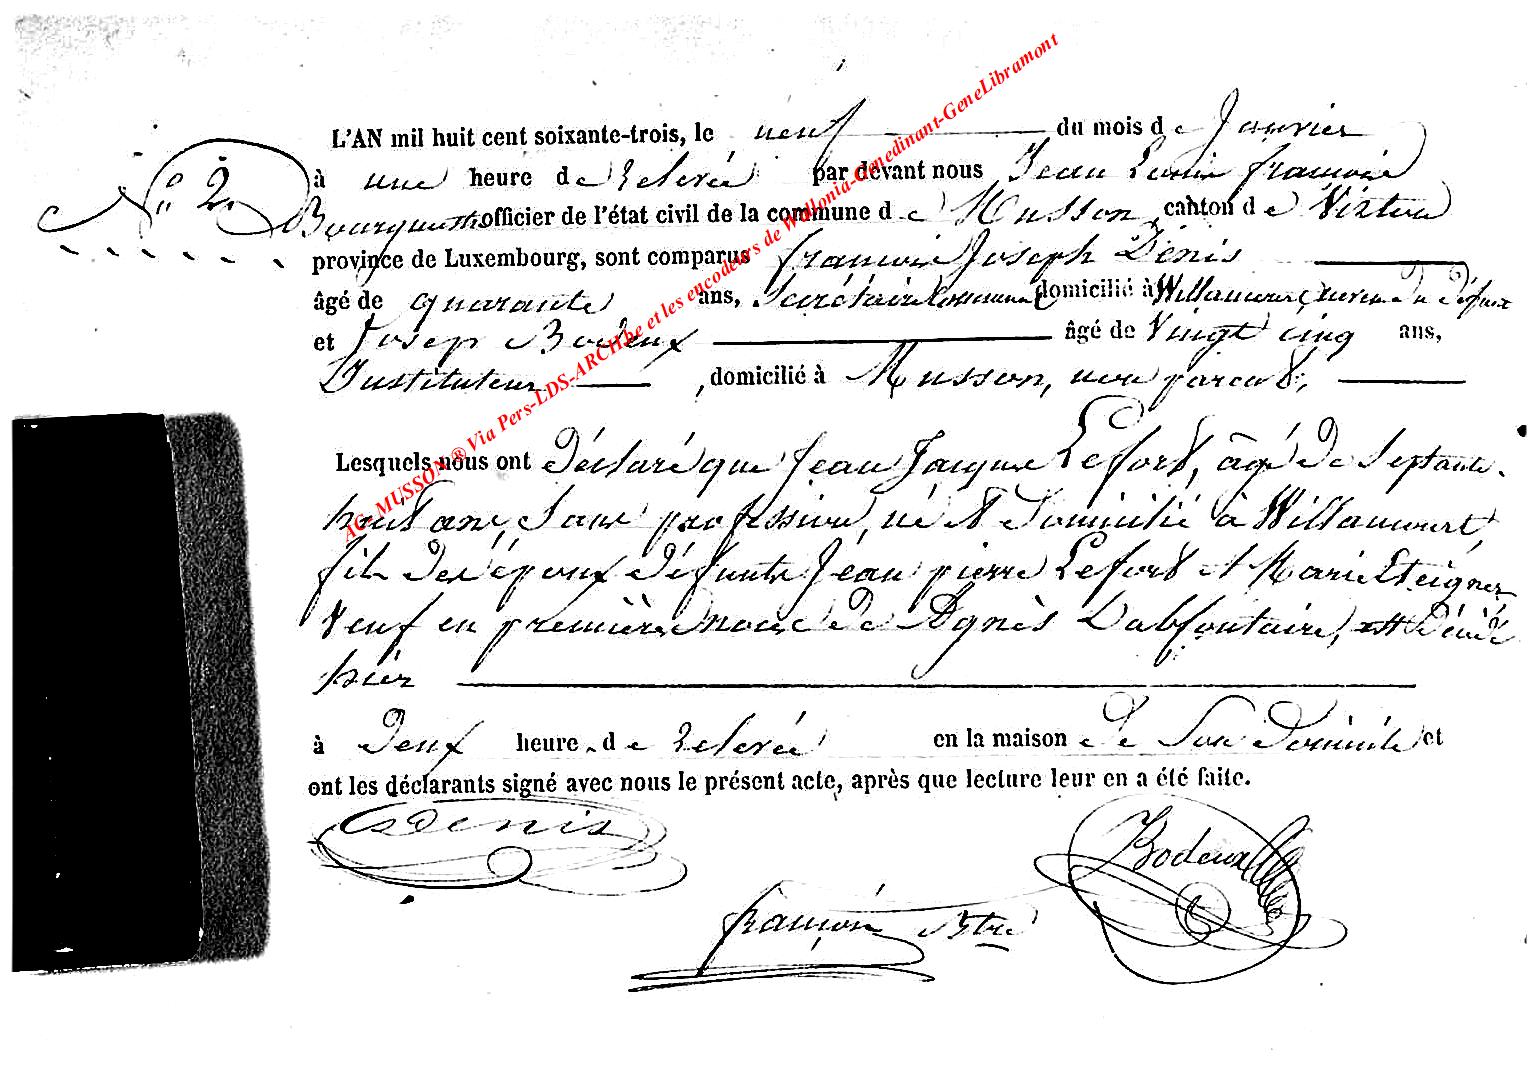 L'AN mil huit cent soixante-trois, le neuf du mois de Janvier
N° 2.
à une heure de relevée par devant nous Jean Louis françois
officier de l'état civil de la commune de Musson, canton de Virton
province de Luxembourg, sont comparus françois Joseph Denis
âgé de quarante ans, Secrétaire Communal domicilié à Willancourt, neveu du défunt
et Joseph Bodeux âgé de Vingt cinq ans,
Instituteur, domicilié à Musson, non parent,
Lesquels nous ont déclaré que Jean Jacques Lefort, âgé de Septante-
huit ans, Sans profession, né et domicilié à Willancourt,
fils des époux défunts Jean pierre Lefort et Marie
Veuf en premières noces de Agnès est décédé
hier
à Deux heures de relevée en la maison de Son Domicile et
ont les déclarants signé avec nous le présent acte, après que lecture leur en a été faite.
Denis
Bodeux
françois
AG- MUSSON ® Via Pers-LDS-ARCH.be et les encodeurs de Wallonia-Genedinant-GeneLibramont